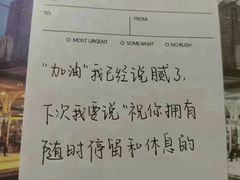 TO:
FROM
MOST URGENT SOMEWHAT NO RUSH
“加油”我已经说腻了,
下次我要说“祝你拥有
随时停留和休息的